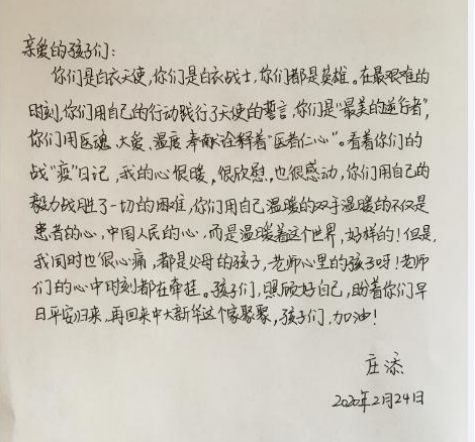 亲爱的孩子们：
你们是白衣天使，你们是白衣战士，你们都是英雄。在最艰难的
时刻，你们用自己的行动践行了天使的誓言，你们是“最美的逆行者”，
你们用医魂、大爱、温度、奉献诠释着“医者仁心”。看着你们的
战“疫”日记，我的心很暖，很欣慰，也很感动，你们用自己的
毅力战胜了一切的困难，你们用自己温暖的双手温暖的不仅是
患者的心，中国人民的心，而是温暖着这个世界，好样的！但是，
我同时也很心痛，都是父母的孩子，老师心里的孩子呀！老师
们的心中时刻都在牵挂。孩子们，照顾好自己，盼着你们早
日平安归来，再回来中大新华这个家聚聚，孩子们，加油！
庄添
2020年2月24日